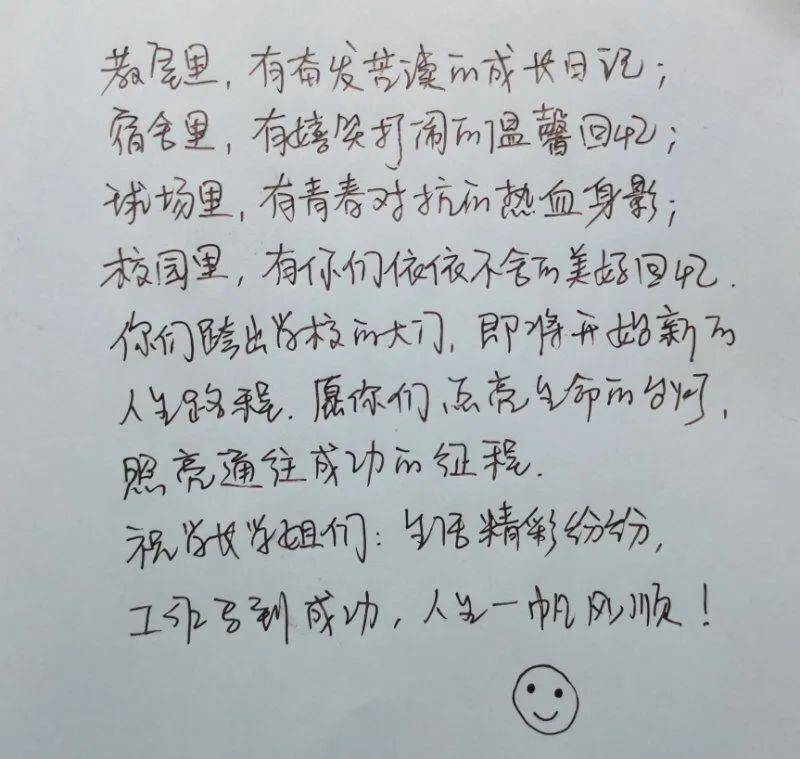 教室里，有奋发苦读的成长日记；
宿舍里，有嬉笑打闹的温馨回忆；
球场里，有青春对抗的热血身影；
校园里，有你们依依不舍的美好回忆.
你们跨出学校的大门，即将开始新的
人生路程.愿你们点亮生命的灯，
照亮通往成功的征程.
祝学长学姐们：生活精彩纷纷，
工作马到成功，人生一帆风顺！